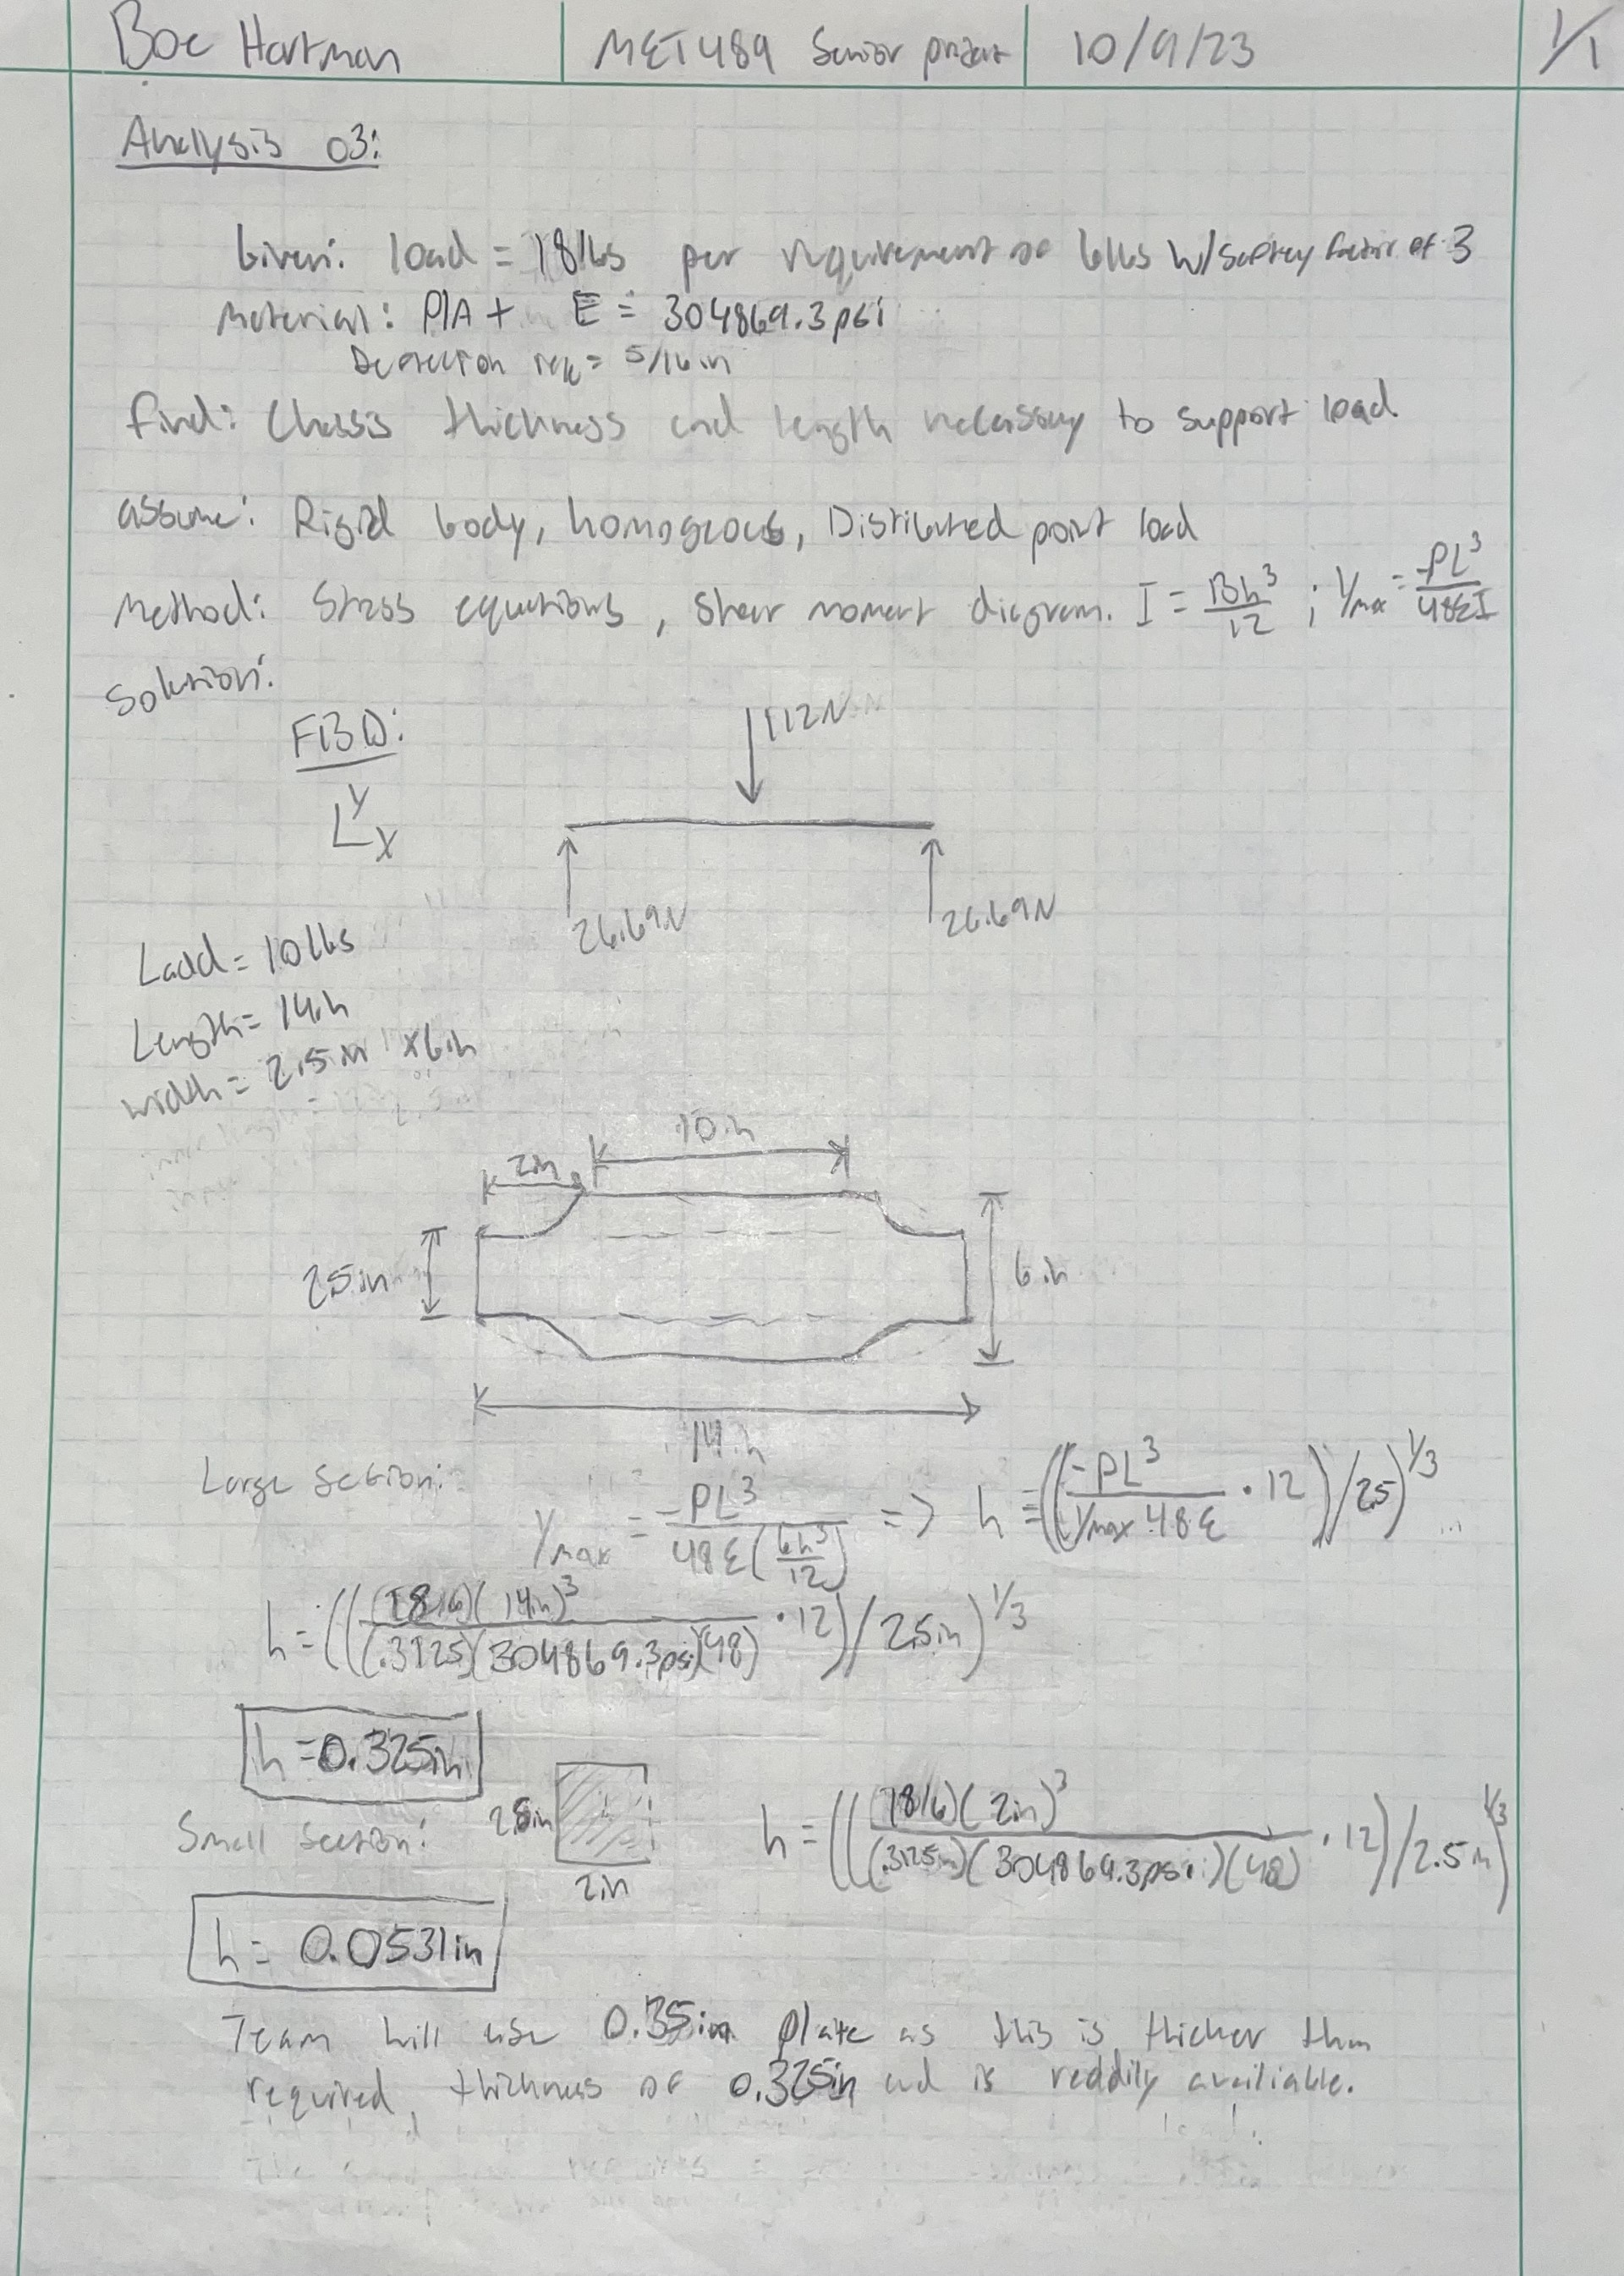 Boe Hartman MET489 Senior project 10/9/23 1/1
Analysis 03:
Given: load = 18lbs per requirement of 6lbs w/saftey factor of 3
Material: PLA+ E = 304869.3psi
Deflection req = 5/16in
Find: Chassis thickness and length necessary to support load.
Assume: Rigid body, homogeous, Distributed point load
Method: Stress equations, shear moment diagram. I = Bh³/12 ; Ymax = -PL³/48EI
Solution:
FBD:
112N
Y
X
26.69N 26.69N
Load = 10lbs
Length = 14in
width = 2.5in x6in
10in
2in
2.5in
6in
14in
Large Section:
Ymax = -PL³/48E(bh³/12) => h = ((-PL³/Ymax 48E · 12)/2.5)^1/3
h = (((18lb)(14in)³/(.3125)(304869.3psi)(48) · 12)/2.5in)^1/3
h = 0.325in
Small Section: 2.5in
2in
h = (((18lb)(2in)³/(.3125in)(304869.3psi)(48) · 12)/2.5in)^1/3
h = 0.0531in
Team will use 0.35in plate as this is thicker than
required thickness of 0.325in and is reddily availiable.